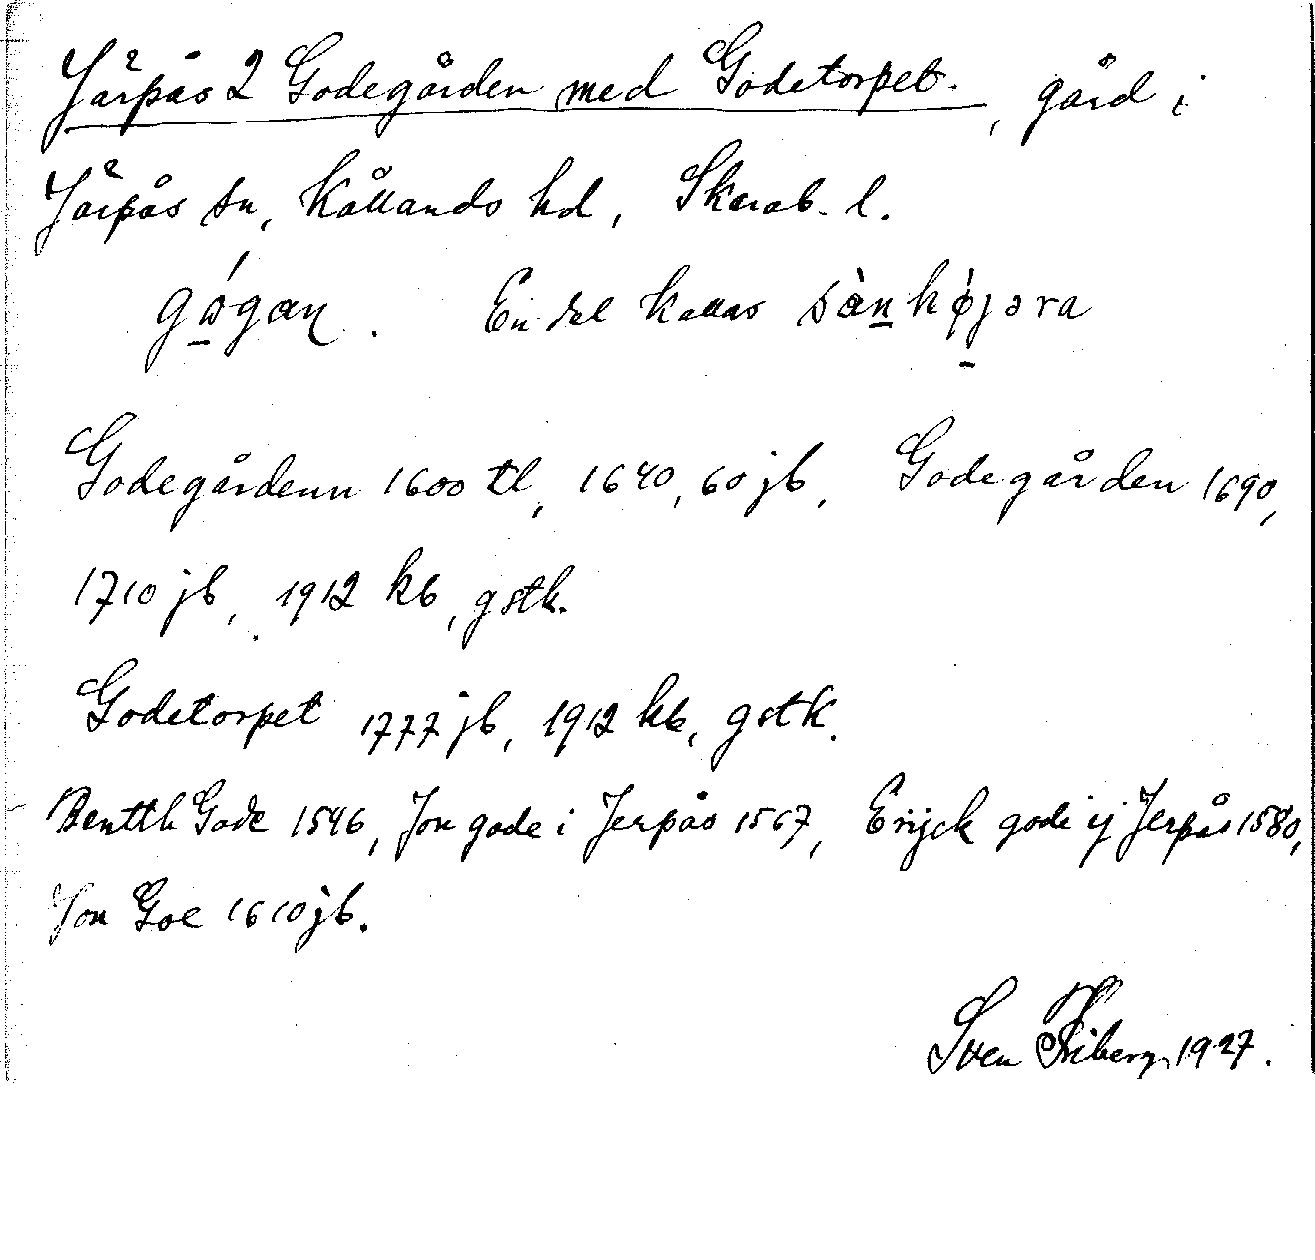 Järpås 2 Godegården med Godetorpet., gård i
Järpås sn, Kållands hd, Skarab. l.
En del kallas
Godegårdenn 1600 tl, 1640, 60 jb, Godegården 1690,
1710 jb, 1912 kb, gstk.
Godetorpet 1777 jb, 1912 kb, gstk.
Bentth Gode 1546, Jon gode i Jerpås 1567, Erijck gode ij Jerpås 1580,
Jon Goe 1610 jb.
Sven Friberg 1927.